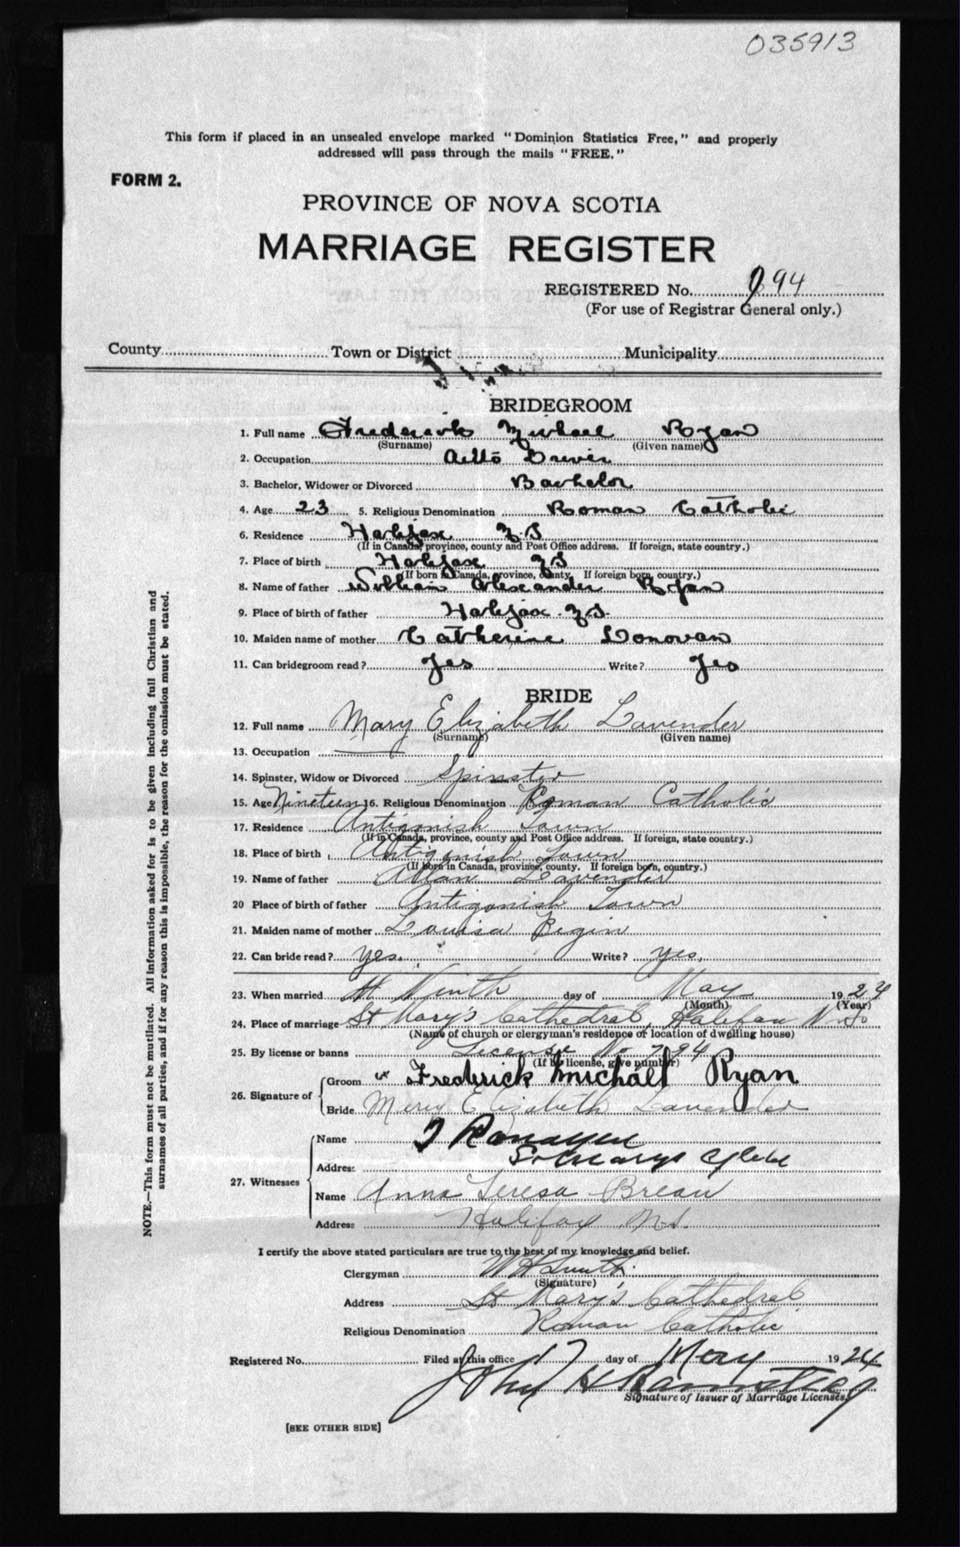 035913
This form if placed in an unsealed envelope marked "Dominion Statistics Free," and properly
addressed will pass through the mails "FREE."
FORM 2.
PROVINCE OF NOVA SCOTIA
MARRIAGE REGISTER
REGISTERED No. 94
(For use of Registrar General only.)
County Town or District Municipality
BRIDEGROOM
1. Full name Frederick Michael Ryan
(Surname) (Given name)
2. Occupation Auto Driver
3. Bachelor, Widower or Divorced Bachelor
4. Age 23 5. Religious Denomination Roman Catholic
6. Residence Halifax N.S
(If in Canada, province, county and Post Office address. If foreign, state country.)
7. Place of birth Halifax NS
(If born in Canada, province, county. If foreign born, country.)
8. Name of father William Alexander Ryan
9. Place of birth of father Halifax N.S.
10. Maiden name of mother Catherine Donovan
11. Can bridegroom read? Yes Write? Yes
BRIDE
12. Full name Mary Elizabeth Lavender
(Surname) (Given name)
13. Occupation
14. Spinster, Widow or Divorced Spinster
15. Age Nineteen 16. Religious Denomination Roman Catholic
17. Residence Antigonish Town
(If in Canada, province, county and Post Office address. If foreign, state country.)
18. Place of birth Antigonish Town
(If born in Canada, province, county. If foreign born, country.)
19. Name of father Allan Lavender
20 Place of birth of father Antigonish Town
21. Maiden name of mother Louisa
22. Can bride read? yes. Write? yes.
23. When married Ninth day of May 1924
(Month) (Year)
24. Place of marriage St Mary's Cathedral, Halifax N.S.
(Name of church or clergyman's residence or location of dwelling house)
25. By license or banns License No 794
(If by license, give number)
26. Signature of Groom Frederick Michall Ryan
Bride Mary Elizabeth Lavender
27. Witnesses
Name
Address St Marys Glebe
Name Anna Teresa
Address Halifax N.S.
I certify the above stated particulars are true to the best of my knowledge and belief.
Clergyman W H Smith
(Signature)
Address St Mary's Cathedral
Religious Denomination Roman Catholic
Registered No. Filed at this office 17 day of May 1924
John H
Signature of Issuer of Marriage Licenses
[SEE OTHER SIDE]
NOTE.—This form must not be mutilated. All information asked for is to be given including full Christian and
surnames of all parties, and if for any reason this is impossible, the reason for the omission must be stated.